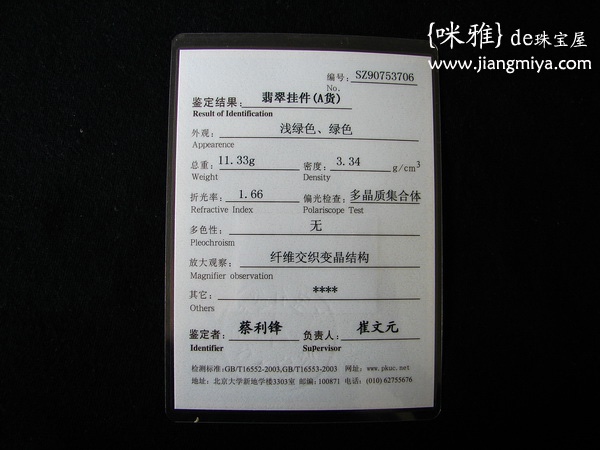 {咪雅}de珠宝屋
www.jiangmiya.com
编号：SZ90753706
No.
鉴定结果：翡翠挂件(A货)
Result of Identification
外观：浅绿色、绿色
Appearence
总重：11.33g 密度：3.34 g/cm³
Weight Density
折光率：1.66 偏光检查：多晶质集合体
Refractive Index Polariscope Test
多色性：无
Pleochroism
放大观察：纤维交织变晶结构
Magnifier observation
其它：****
Others
鉴定者：蔡利锋 负责人：崔文元
Identifier Supervisor
检测标准:GB/T16552-2003,GB/T16553-2003 网址：www.pkuc.net
地址：北京大学新地学楼3303室 邮编:100871 电话：(010) 62755676